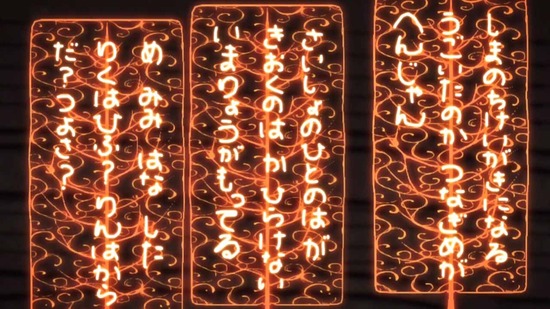 しまのちけいがきになる
うごいたのか つなぎめが
へんじゃん
さいしょのひとのはが
きおくのは かひらけない
いまりょうがもってる
め みみ はな した
りくはひふ？ りんはから
だ？つよさ？